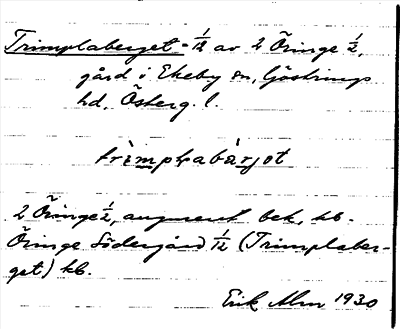 Trimplaberget = 1/12 av 2 Öringe 1/2,
gård i Ekeby sn, Göstrings
hd, Österg. l.
trimplabärjet
2 Öringe 1/2, augment bek, kb.
Öringe Södergård 1/12 (Trimplaber-
get) kb.
Erik Alm 1930